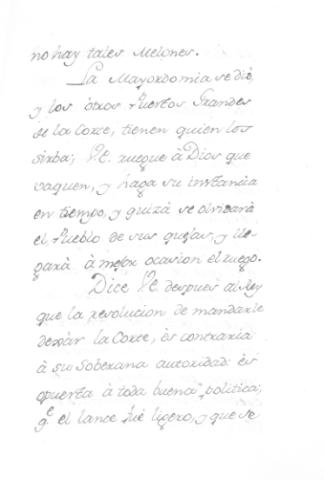 no hay tales Melones.
La Mayordomia se diò,
y los otros Puertos Grandes
de la Corte, tienen quien los
sirba; V.E. ruegue à Dios que
vaquen, y haga su instancia
en tiempo, y quizà se olvidarà
el Pueblo de sus quejas, y lle-
garà à mejor ocasion el ruego.
Dice V.E. despues al Rey
que la resolucion de mandarle
dexàr la Corte, ès contraria
à su Soberana autoridad: ès
opuesta à toda buena politica;
q.e el lance fuè ligero, y que se